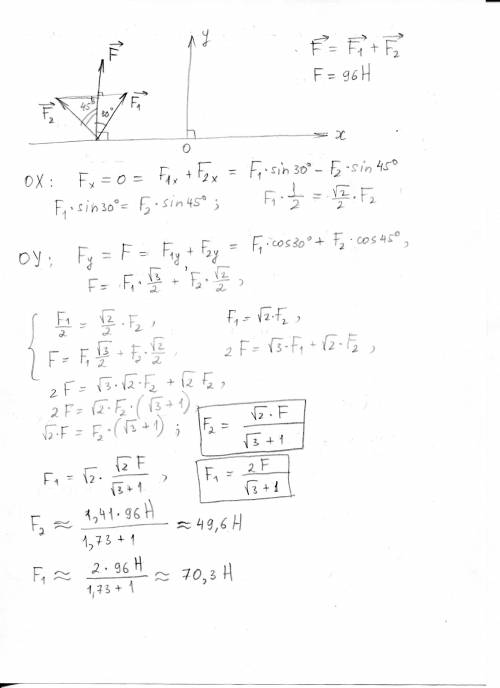 y
F⃗
F⃗ = F⃗₁ + F⃗₂
F = 96H
F⃗₂ 45° 30° F⃗₁
0 x
OX: Fx = 0 = F₁x + F₂x = F₁·sin30° − F₂·sin45°
F₁·sin30° = F₂·sin45°; F₁·1/2 = √2/2·F₂
OY; Fy = F = F₁y + F₂y = F₁·cos30° + F₂·cos45°,
F = F₁·√3/2 + F₂·√2/2,
{ F₁/2 = √2/2·F₂, F₁ = √2·F₂,
F = F₁ √3/2 + F₂·√2/2 2F = √3·F₁ + √2·F₂,
2F = √3·√2·F₂ + √2 F₂,
2F = √2·F₂·(√3+1),
√2·F = F₂·(√3+1); F₂ = √2·F/(√3+1)
F₁ = √2·√2F/(√3+1), F₁ = 2F/(√3+1)
F₂ ≈ 1,41·96H/(1,73+1) ≈ 49,6H
F₁ ≈ 2·96H/(1,73+1) ≈ 70,3H